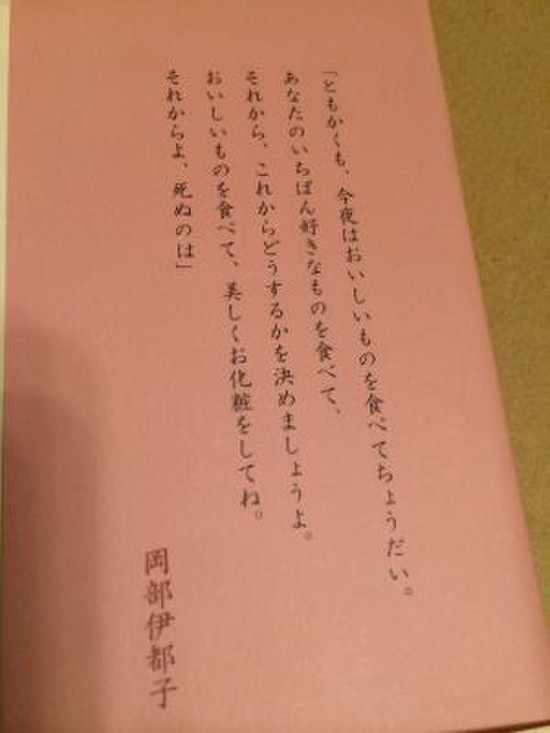 「ともかくも、今夜はおいしいものを食べてちょうだい。
あなたのいちばん好きなものを食べて、
それから、これからどうするかを決めましょうよ。
おいしいものを食べて、美しくお化粧をしてね。
それからよ、死ぬのは」
岡部伊都子